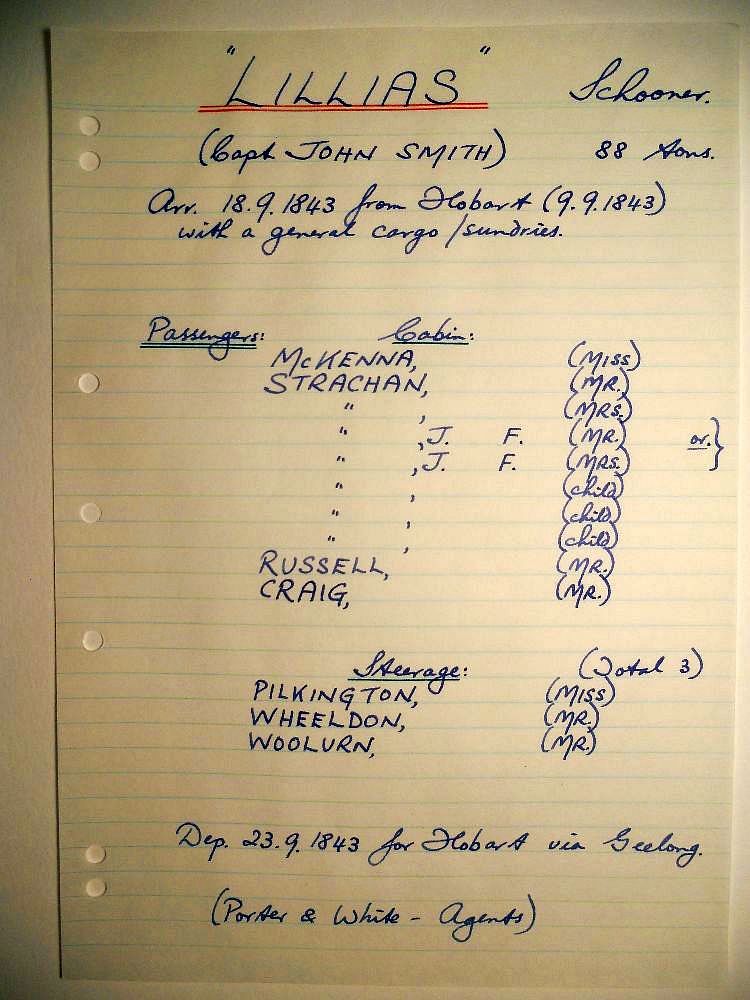 "LILLIAS" Schooner.
(Capt JOHN SMITH) 88 tons.
Arr. 18.9.1843 from Hobart (9.9.1843)
with a general cargo/sundries.
Passengers: Cabin:
McKENNA, (MISS)
STRACHAN, (MR.)
" , (MRS.)
" , J. F. (MR.) or. }
" , J. F. (MRS.)
" , (child)
" , (child)
" , (child)
RUSSELL, (MR.)
CRAIG, (MR.)
Steerage: (Total 3)
PILKINGTON, (MISS)
WHEELDON, (MR.)
WOOLURN, (MR.)
Dep. 23.9.1843 for Hobart via Geelong.
(Porter & White - Agents)